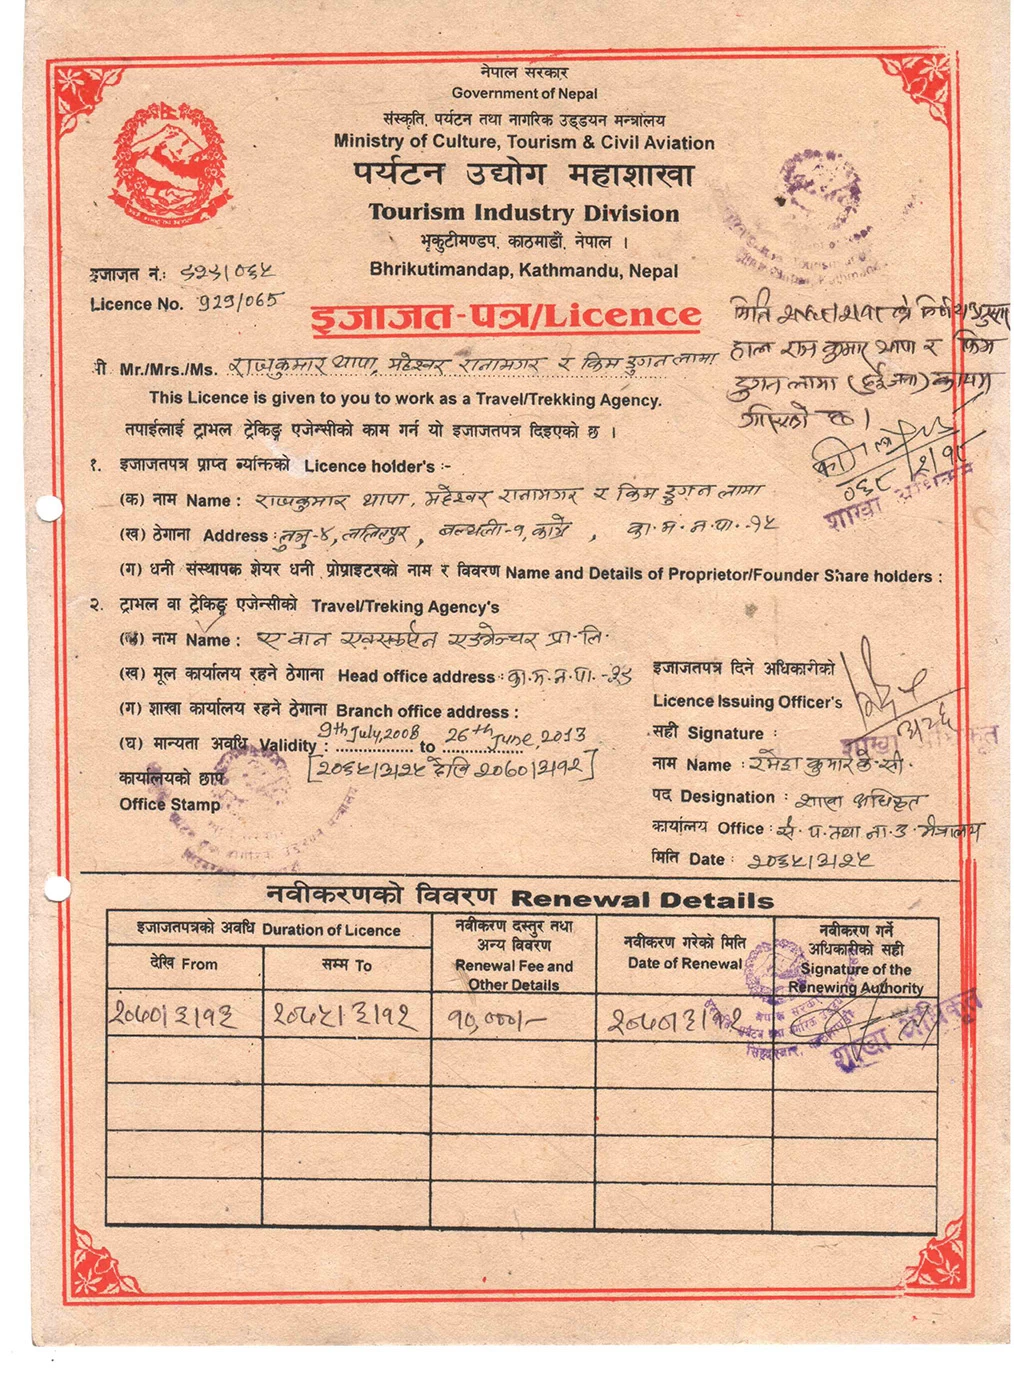 नेपाल सरकार
Government of Nepal
संस्कृति, पर्यटन तथा नागरिक उड्डयन मन्त्रालय
Ministry of Culture, Tourism & Civil Aviation
पर्यटन उद्योग महाशाखा
Tourism Industry Division
भृकुटीमण्डप, काठमाडौं, नेपाल ।
Bhrikutimandap, Kathmandu, Nepal
इजाजत नं: ९२९/०६५
Licence No. 929/065
इजाजत-पत्र/Licence
मिति ले निर्णय अनुसार
हाल राज कुमार थापा र किम
डुगन लामा (दुई जना) कायम
गरिएको छ ।
०६८/२/१८
शाखा अधिकृत
श्री Mr./Mrs./Ms. राजकुमार थापा, महेश्वर रानामगर र किम डुगन लामा
This Licence is given to you to work as a Travel/Trekking Agency.
तपाईलाई ट्राभल ट्रेकिङ्ग एजेन्सीको काम गर्न यो इजाजतपत्र दिइएको छ ।
१. इजाजतपत्र प्राप्त व्यक्तिको Licence holder's :-
(क) नाम Name : राजकुमार थापा, महेश्वर रानामगर र किम डुगन लामा
(ख) ठेगाना Address : लुभु-४, ललितपुर, बल्थली-१, काभ्रे, का.म.न.पा.-१५
(ग) धनी संस्थापक शेयर धनी प्रोप्राइटरको नाम र विवरण Name and Details of Proprietor/Founder Share holders :
२. ट्राभल वा ट्रेकिङ्ग एजेन्सीको Travel/Treking Agency's
(क) नाम Name : ए वान एक्सकर्सन एडभेन्चर प्रा.लि.
(ख) मूल कार्यालय रहने ठेगाना Head office address : का.म.न.पा.-
(ग) शाखा कार्यालय रहने ठेगाना Branch office address :
(घ) मान्यता अवधि Validity : 9th July, 2008 to 26th June, 2013
[२०६५/३/२५ देखि २०७०/३/१२]
कार्यालयको छाप
Office Stamp
इजाजतपत्र दिने अधिकारीको
Licence Issuing Officer's
सही Signature :
३/२६
शाखा अधिकृत
नाम Name : रमेश कुमार के.सी.
पद Designation : शाखा अधिकृत
कार्यालय Office : सं. प. तथा ना. उ. मन्त्रालय
मिति Date : २०६५/३/२५
नवीकरणको विवरण Renewal Details
इजाजतपत्रको अवधि Duration of Licence
देखि From
सम्म To
नवीकरण दस्तुर तथा अन्य विवरण
Renewal Fee and Other Details
नवीकरण गरेको मिति
Date of Renewal
नवीकरण गर्ने अधिकारीको सही
Signature of the Renewing Authority
२०७०/३/१३ २०७५/३/१२ १०,०००/- २०७०/३/१२
शाखा अधिकृत